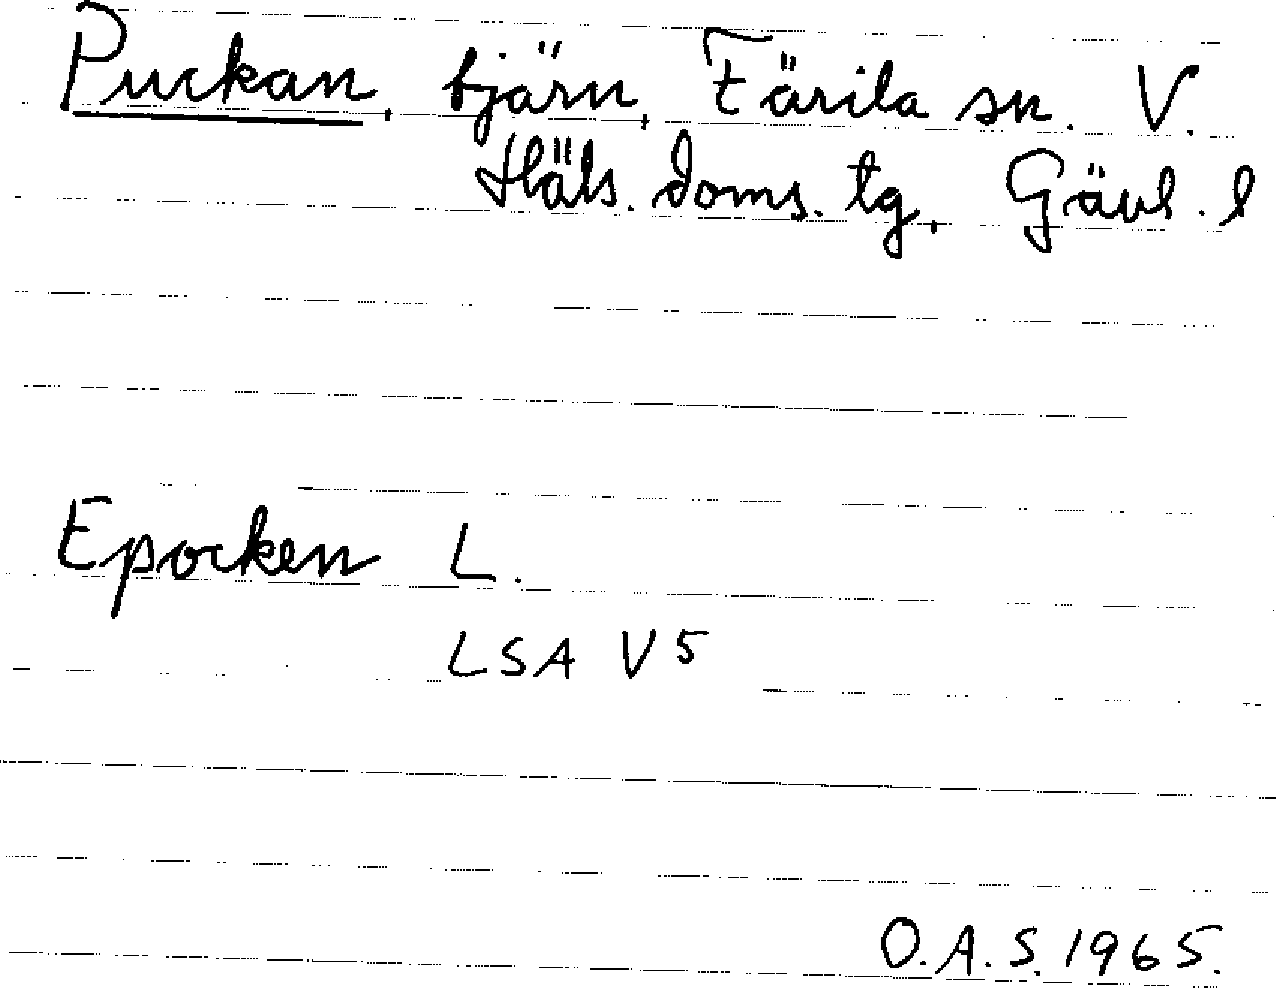 Puckan, tjärn, Färila sn. V.
Häls. doms. tg, Gävl. l
Epocken L.
LSA V5
O.A.S. 1965.